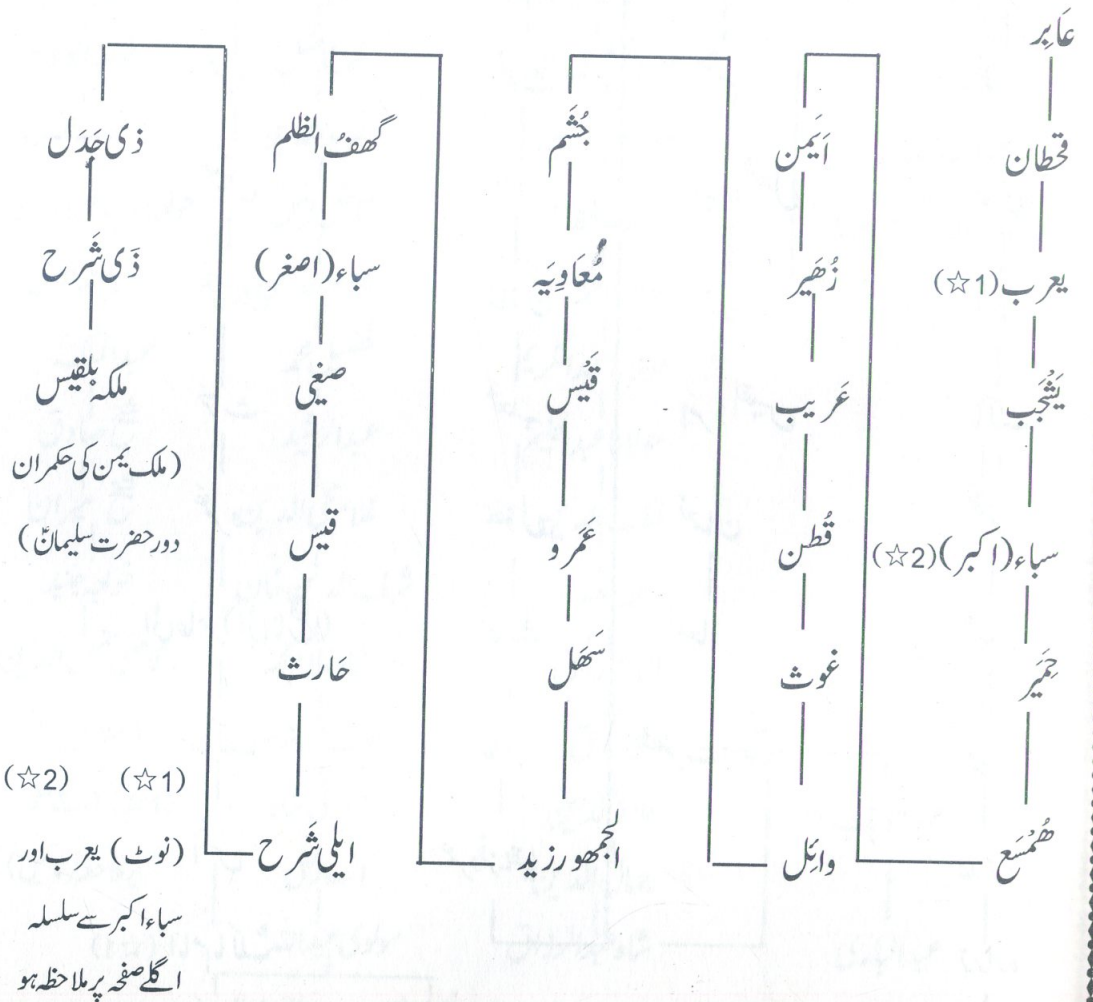 عَابِر
قحطان
یعرب (☆1)
یَشْجُب
سباء (اکبر) (☆2)
حِمْیَر
ھُمْسَع
اَیْمَن
زُھَیر
عَرِیب
قُطن
غوث
وائِل
جُشَم
مُعَاوِیَہ
قَیْس
عَمرو
سَھَل
الجمھور زید
گھفُ الظلم
سباء (اصغر)
صیفی
قیس
حَارث
ایلی شَرح
ذی جَدَل
ذَی شَرح
ملکہ بلقیس
(ملک یمن کی حکمران
دور حضرت سلیمانؑ)
(☆1) (☆2)
(نوٹ) یعرب اور
سباء اکبر سے سلسلہ
اگلے صفحہ پر ملاحظہ ہو